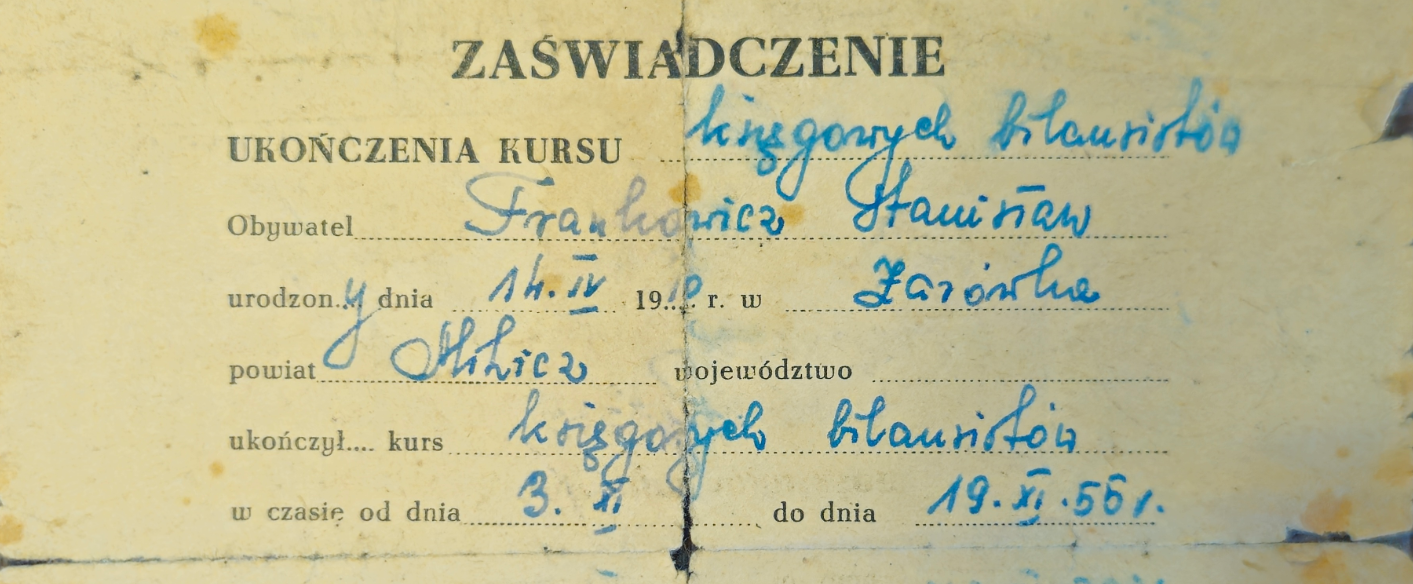 ZAŚWIADCZENIE
UKOŃCZENIA KURSU księgowych bilansistów
Obywatel Frankowicz Stanisław
urodzon..y dnia 14.IV 1910 r. w Żarówka
powiat Milicz województwo
ukończył.... kurs księgowych bilansistów
w czasie od dnia 3. XI do dnia 19.XI.55r.